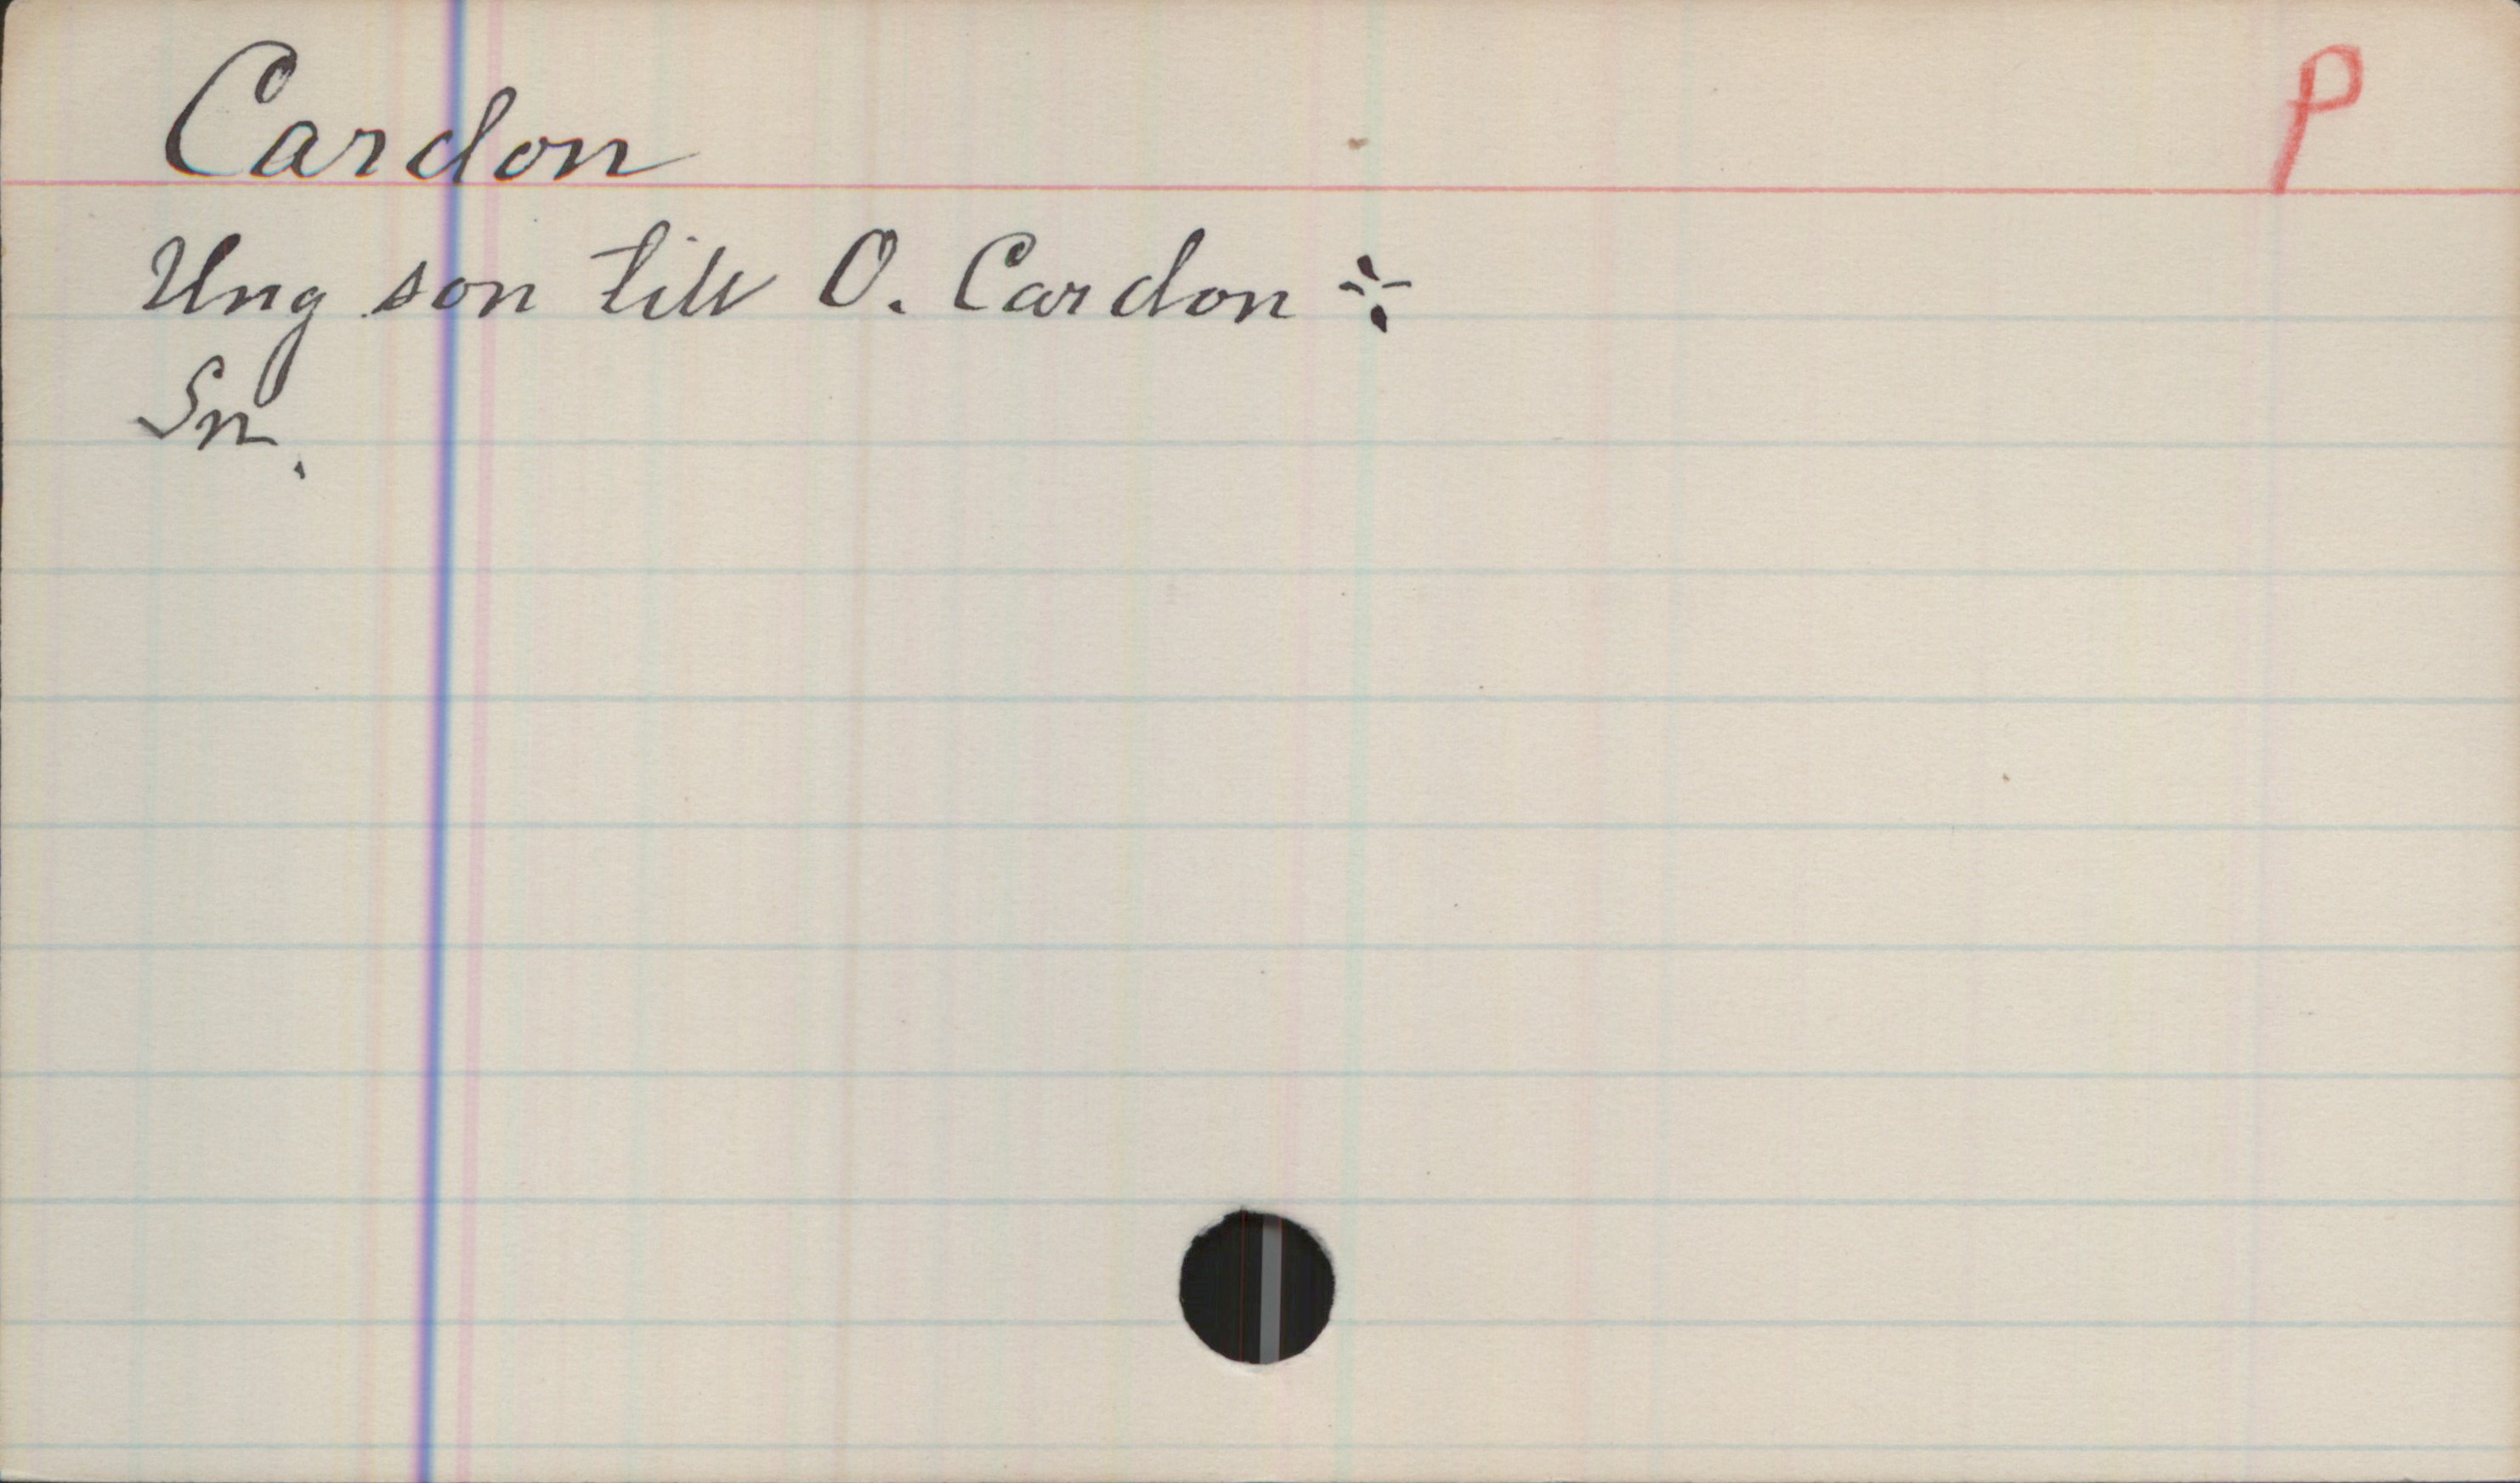 Cardon P
Ung son till O. Cardon ÷
Sn.